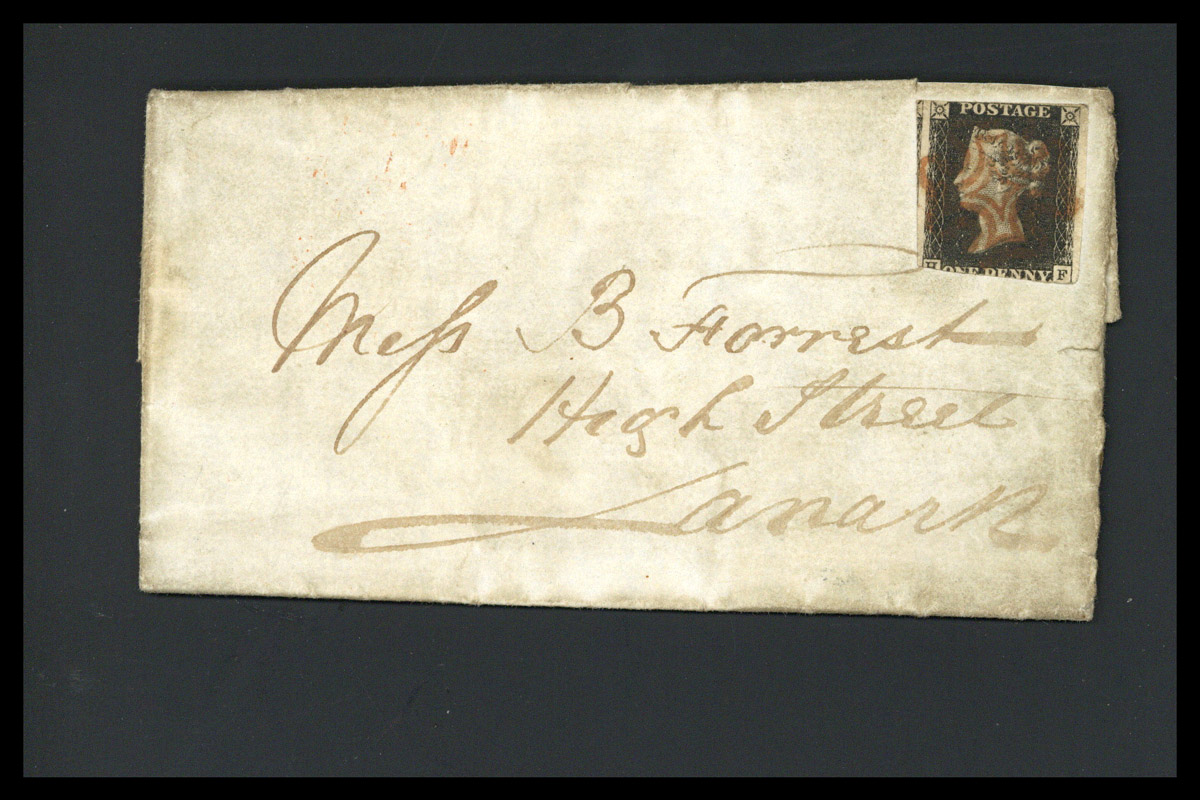 POSTAGE
H ONE PENNY. F
Miss B Forrest
High Street
Lanark